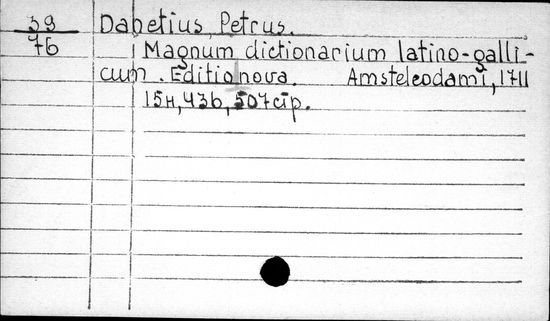 39 Dabetius, Petrus.
76 Magnum dictionarium latino-galli-
cum. Editio nova. Amsteleodami, 1711
15н, 436, 507 стр.